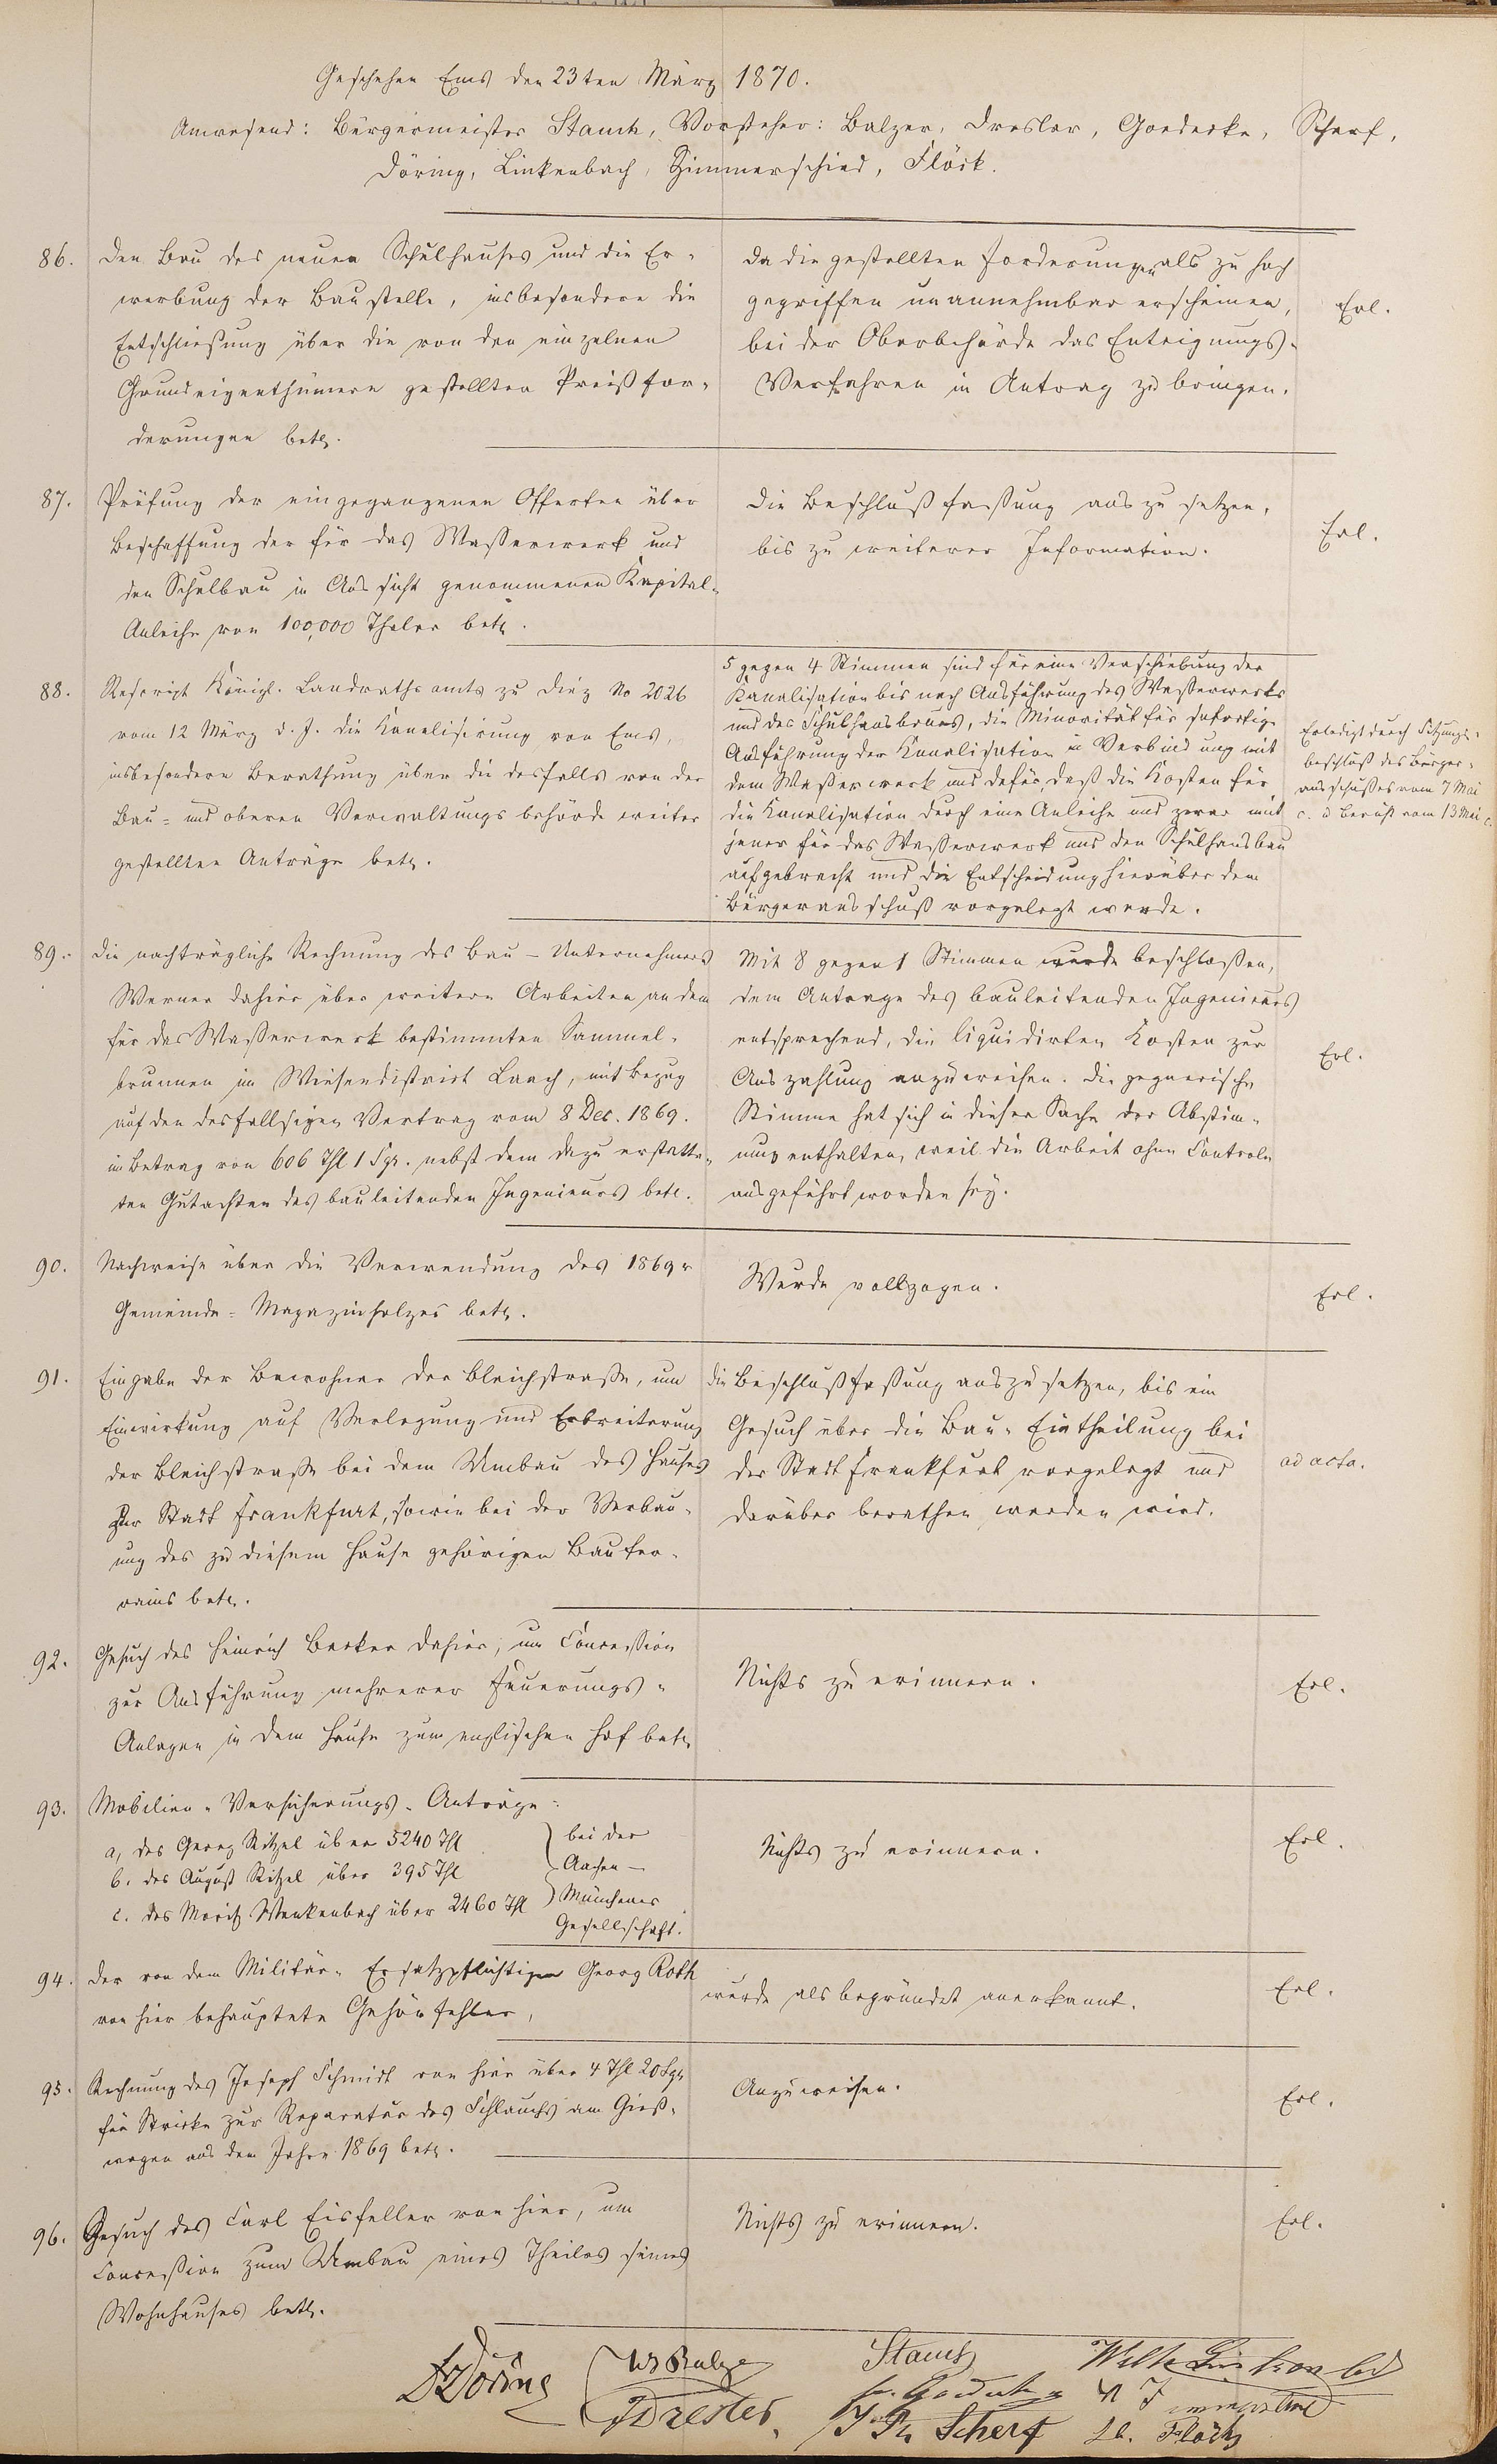 Geschehen Ems den 23ten März 1870.
Anwesend: Bürgermeister Stauch, Vorsteher: Balzer, Dresler, Goedecke, Scherf,
Döring, Linkenbach, Zimmerschied, Flöck.
86.
Den Bau des neuen Schulhauses und die Er-
werbung der Baustelle, insbesondere die
Entschließung über die von den einzelnen
Grundeigenthümern gestellten Preißfor-
derungen betr.
Da die gestellten Forderungen als zu hoch
gegriffen unannehmbar erscheinen,
bei der Oberbehörde das Enteignungs-
Verfahren in Antrag zu bringen.
Erl.
87.
Prüfung der eingegangenen Offerten über
Beschaffung der für das Wasserwerk und
den Schulbau in Aussicht genommenen Kapital-
Anleihe von 100,000 Thaler betr.
Die Beschlußfassung auszusetzen,
bis zu weiterer Information.
Erl.
88.
Rescript Königl. Landrathsamts zu Diez No 2026
vom 12 März d. J. die Kanalisirung von Ems,
insbesondere Berathung über die desfalls von der
Bau- und oberen Verwaltungsbehörde weiter
gestellten Anträge betr.
5 gegen 4 Stimmen sind für eine Verschiebung der
Kanalisation bis nach Ausführung des Wasserwerks
und des Schulhausbaues, die Minorität für sofortige
Ausführung der Kanalisation in Verbindung mit
dem Wasserwerk und dafür, daß die Kosten für
die Kanalisation durch eine Anleihe und zwar mit
jener für das Wasserwerk und den Schulhausbau
aufgebracht und die Entscheidung hierüber dem
Bürgerausschuß vorgelegt werde.
Erledigt durch Sitzungs-
beschluß des Bürger-
ausschusses vom 7 Mai
c. u Bericht vom 13 Mai c.
89.
Die nachträgliche Rechnung des Bau-Unternehmers
Werner dahier über weitere Arbeiten an dem
für das Wasserwerk bestimmten Sammel-
brunnen im Wiesendistrict Laach, mit Bezug
auf den desfallsigen Vertrag vom 8 Dec. 1869.
im Betrag von 606 Thl 1 Sgr. nebst dem dazu erstatte-
ten Gutachten des bauleitenden Ingenieurs betr.
Mit 8 gegen 1 Stimmen wurde beschlossen,
dem Antrage des bauleitenden Ingenieurs
entsprechend, die liquidirten Kosten zur
Auszahlung anzuweisen. Die gegnerische
Stimme hat sich in dieser Sache der Abstim-
mung enthalten, weil die Arbeit ohne Controle
ausgeführt worden sey.
Erl.
90.
Nachweise über die Verwendung des 1869r
Gemeinde-Magazinholzes betr.
Wurde vollzogen.
Erl.
91.
Eingabe der Bewohner der Bleichstraße, um
Einwirkung auf Verlegung und Erbreiterung
der Bleichstraße bei dem Umbau des Hauses
Zur Stadt Frankfurt, sowie bei der Verbau-
ung des zu diesem Hause gehörigen Bauter-
rains betr.
die Beschlußfassung auszusetzen, bis ein
Gesuch über die Bau-Eintheilung bei
der Stadt Frankfurt vorgelegt und
darüber berathen werden wird.
ad acta.
92.
Gesuch des Heinrich Becker dahier, um Concession
zur Ausführung mehrerer Feuerungs-
Anlagen in dem Hause zum englischen Hof betr.
Nichts zu erinnern.
Erl.
93.
Mobilien-Versicherungs-Anträge:
a, des Georg Ritzel über 5240 Thl
b. des August Ritzel über 395 Thl
c. des Moritz Wenkenbach über 2460 Thl
bei der
Aachen-
Münchener
Gesellschaft.
Nichts zu erinnern.
Erl.
94.
Der von dem Militär-Ersatzpflichtigen Georg Roth
von hier behauptete Gehörfehler,
wurde als begründet anerkannt.
Erl.
95.
Rechnung des Joseph Schmidt von hier über 4 Thl 20 Sgr
für Stricke zur Reparatur des Schlauchs am Gieß-
wagen aus dem Jahre 1869 betr.
Anzuweisen.
Erl.
96.
Gesuch des Carl Eisfeller von hier, um
Concession zum Umbau eines Theiles seines
Wohnhauses betr.
Nichts zu erinnern.
Erl.
Döring
Balzer
Stauch
Linkenbach
Dresler
Goedecke
Scherf
Flöck